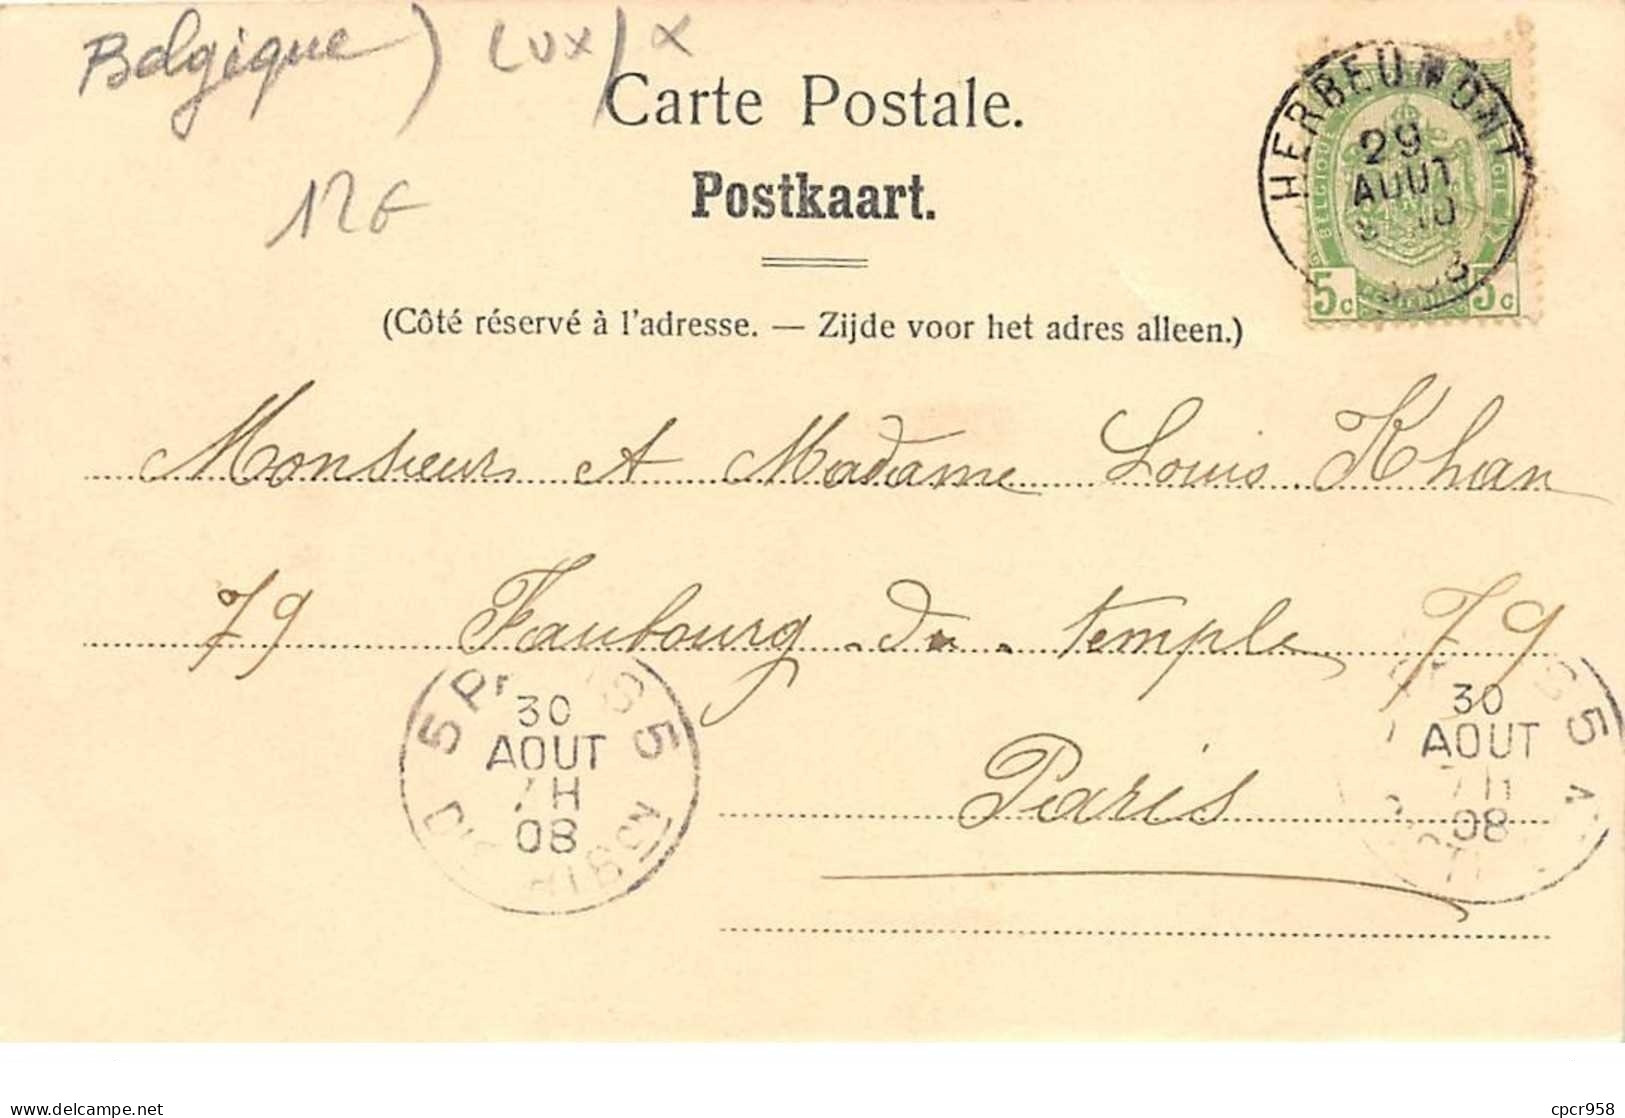 Belgique) Lux/X
Carte Postale.
Postkaart.
12€
(Côté réservé à l'adresse. — Zijde voor het adres alleen.)
HERBEUMONT
29
AOUT
1908
BELGIQUE
5c 5c
Monsieur et Madame Louis Khan
79 Faubourg du temple 79
Paris
5 PARIS 5
30
AOUT
7H
08
DISTRIBON
30
AOUT
7H
08
delcampe.net
cpcr958